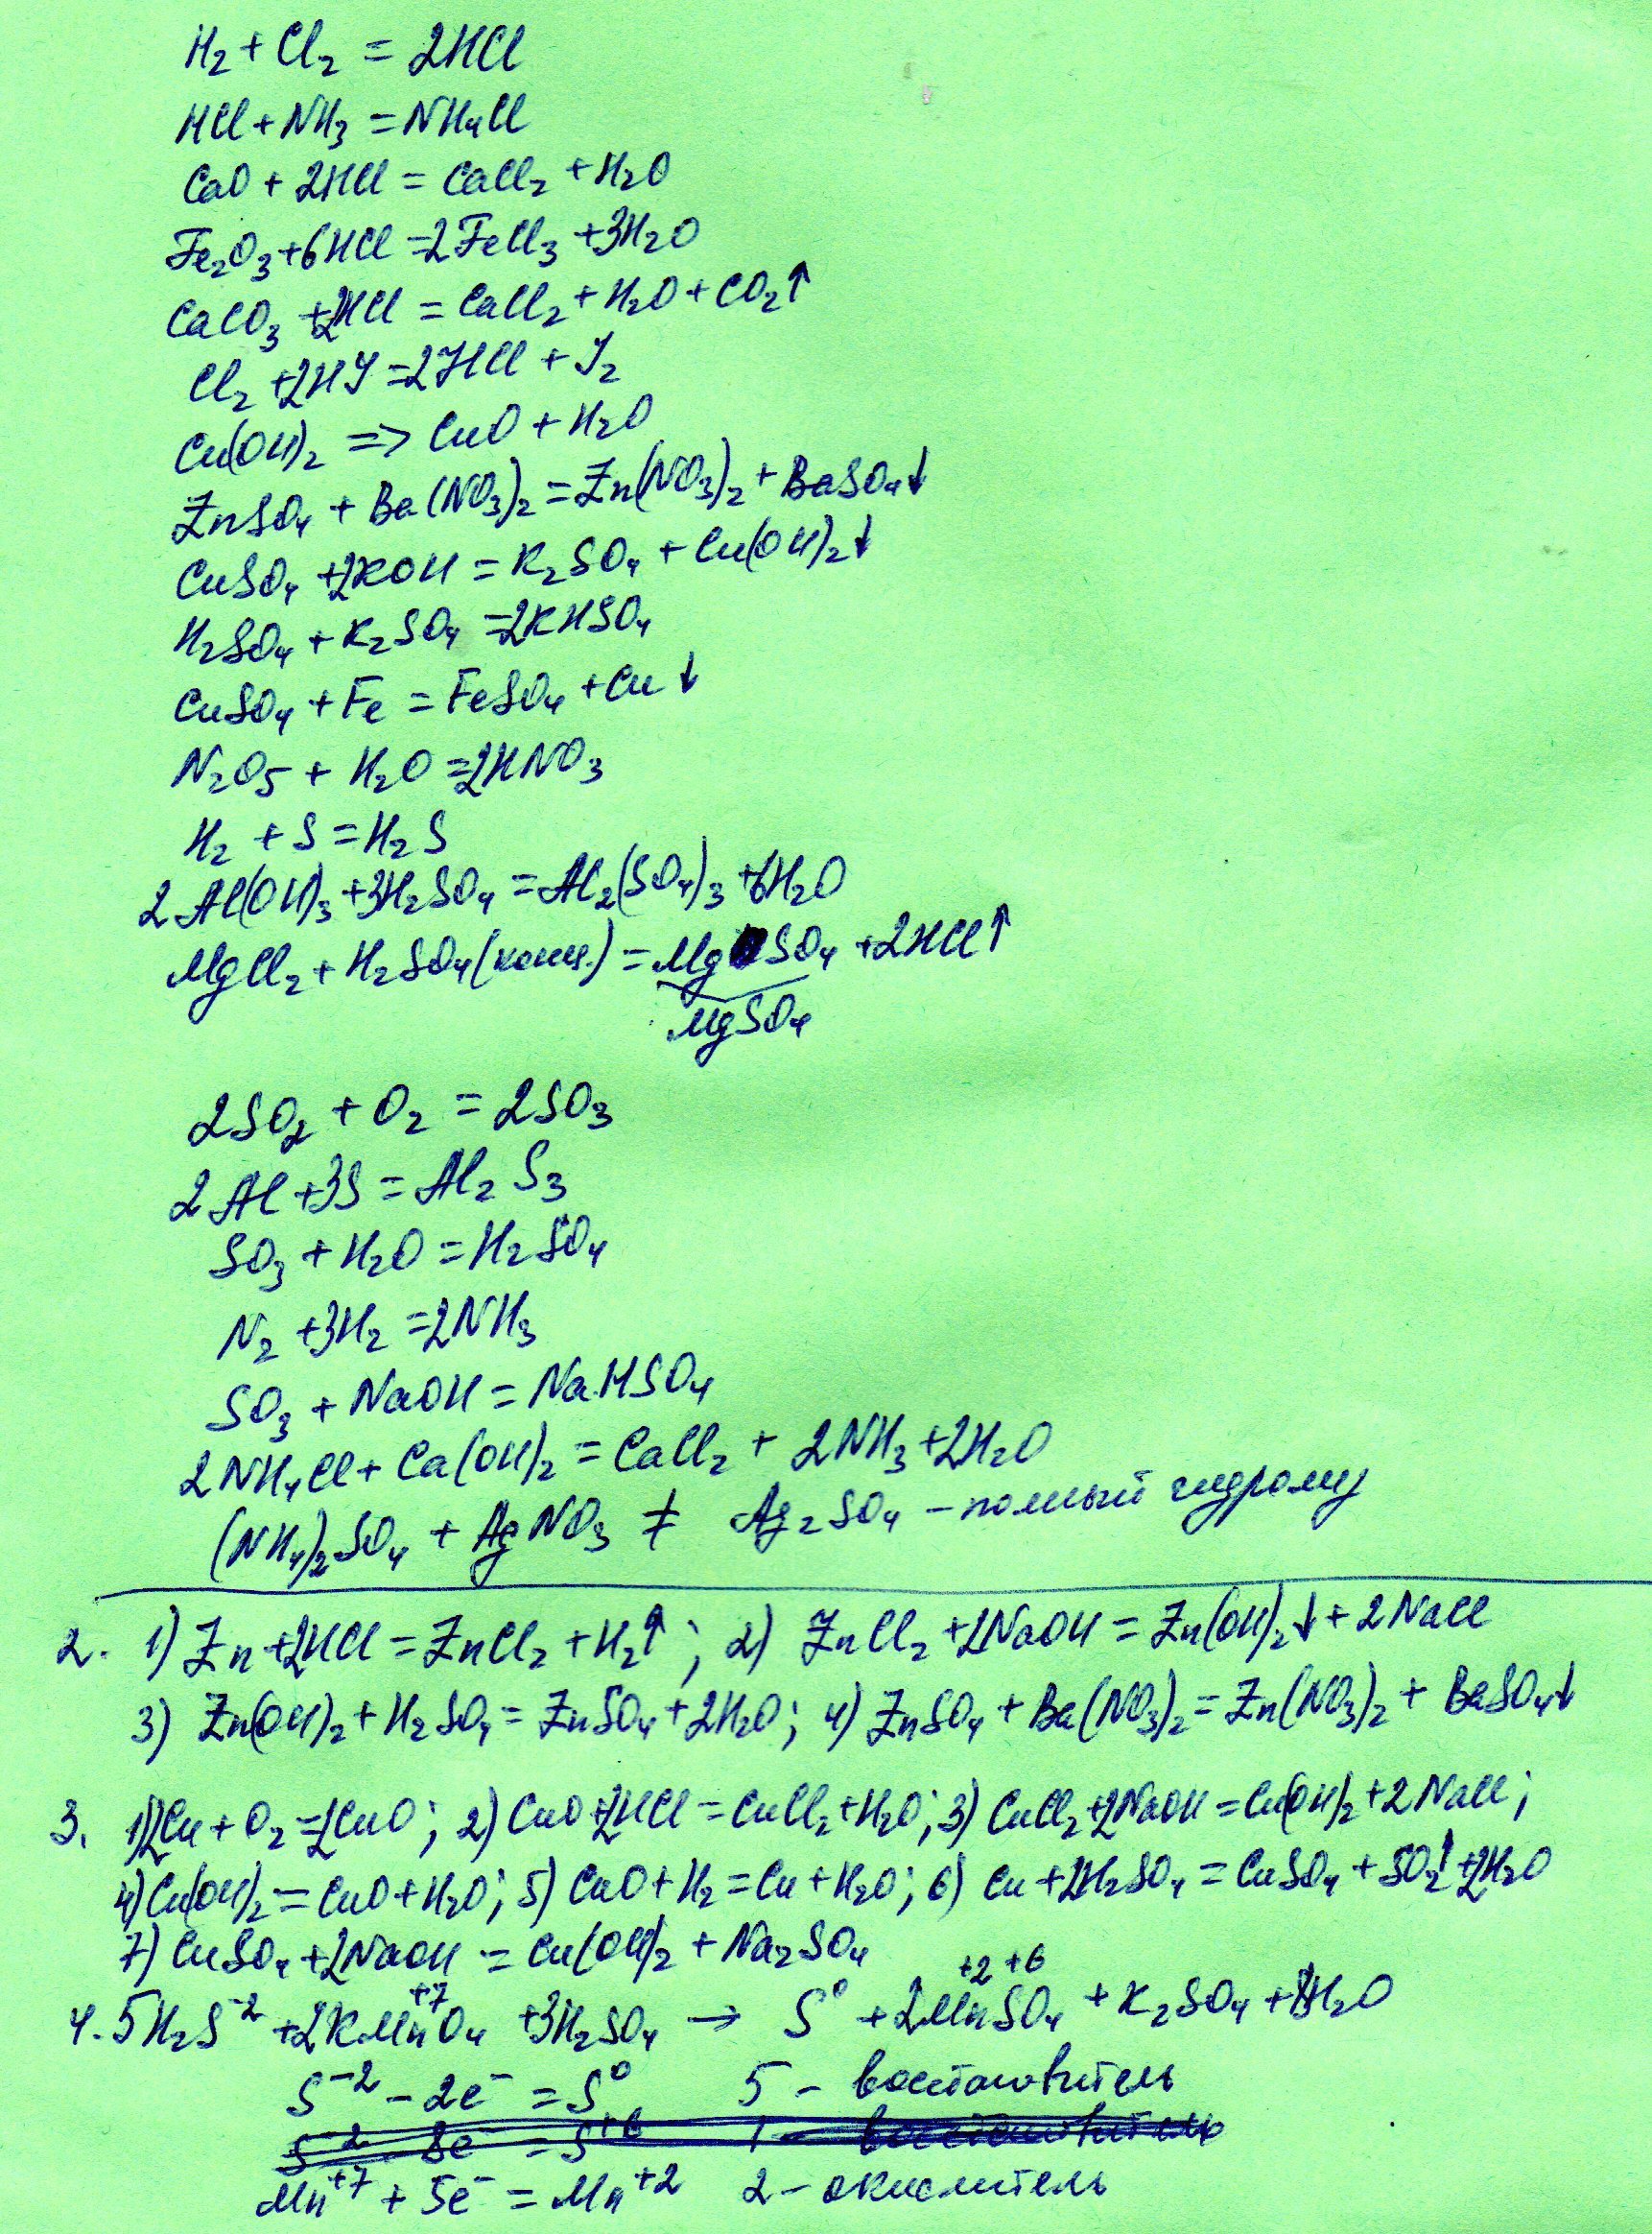 H₂ + Cl₂ = 2HCl
HCl + NH₃ = NH₄Cl
CaO + 2HCl = CaCl₂ + H₂O
Fe₂O₃ + 6HCl = 2FeCl₃ + 3H₂O
CaCO₃ + 2HCl = CaCl₂ + H₂O + CO₂↑
Cl₂ + 2HJ = 2HCl + J₂
Cu(OH)₂ => CuO + H₂O
ZnSO₄ + Ba(NO₃)₂ = Zn(NO₃)₂ + BaSO₄↓
CuSO₄ + 2KOH = K₂SO₄ + Cu(OH)₂↓
H₂SO₄ + K₂SO₄ = 2KHSO₄
CuSO₄ + Fe = FeSO₄ + Cu↓
N₂O₅ + H₂O = 2HNO₃
H₂ + S = H₂S
2Al(OH)₃ + 3H₂SO₄ = Al₂(SO₄)₃ + 6H₂O
MgCl₂ + H₂SO₄(конц.) = MgSO₄ + 2HCl↑
MgSO₄
2SO₂ + O₂ = 2SO₃
2Al + 3S = Al₂S₃
SO₃ + H₂O = H₂SO₄
N₂ + 3H₂ = 2NH₃
SO₃ + NaOH = NaHSO₄
2NH₄Cl + Ca(OH)₂ = CaCl₂ + 2NH₃ + 2H₂O
(NH₄)₂SO₄ + AgNO₃ ≠ Ag₂SO₄ – полный гидролиз
2. 1) Zn + 2HCl = ZnCl₂ + H₂↑; 2) ZnCl₂ + 2NaOH = Zn(OH)₂↓ + 2NaCl
3) Zn(OH)₂ + H₂SO₄ = ZnSO₄ + 2H₂O; 4) ZnSO₄ + Ba(NO₃)₂ = Zn(NO₃)₂ + BaSO₄↓
3. 1) 2Cu + O₂ = 2CuO; 2) CuO + 2HCl = CuCl₂ + H₂O; 3) CuCl₂ + 2NaOH = Cu(OH)₂ + 2NaCl;
4) Cu(OH)₂ = CuO + H₂O; 5) CuO + H₂ = Cu + H₂O; 6) Cu + 2H₂SO₄ = CuSO₄ + SO₂↑ + 2H₂O
7) CuSO₄ + 2NaOH = Cu(OH)₂ + Na₂SO₄
4. 5H₂S⁻² + 2KMn⁺⁷O₄ + 3H₂SO₄ → S⁰ + 2Mn⁺²S⁺⁶O₄ + K₂SO₄ + 8H₂O
S⁻² – 2e⁻ = S⁰ 5 – восстановитель
S⁻² – 8e⁻ = S⁺⁶ 1 – восстановитель
Mn⁺⁷ + 5e⁻ = Mn⁺² 2 – окислитель